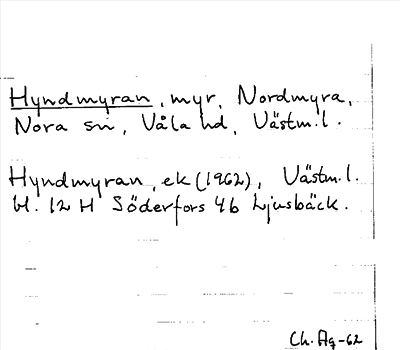 Hyndmyran, myr, Nordmyra,
Nora sn, Våla hd, Västm. l.
Hyndmyran, ek (1962), Västm. l.
bl. 12 H Söderfors 4b Ljusbäck.
Ch. Ag -62